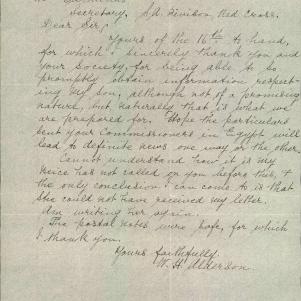 Secretary, S.A. Division Red Cross.
Dear Sir,
Yours of the 16th to hand,
for which I sincerely thank you and
your Society, for being able to so
promptly obtain information respect-
ing my son, although not of a promising
nature, but naturally that is what we
are prepared for. Hope the particulars
sent your Commissioners in Egypt will
lead to definite news one way or the other.
Cannot understand how it is my
niece has not called on you before this, &
the only conclusion I can come to is that
she could not have received my letter.
Am writing her again.
The postal notes were safe, for which
I thank you.
Yours faithfully
W. H. Alderson